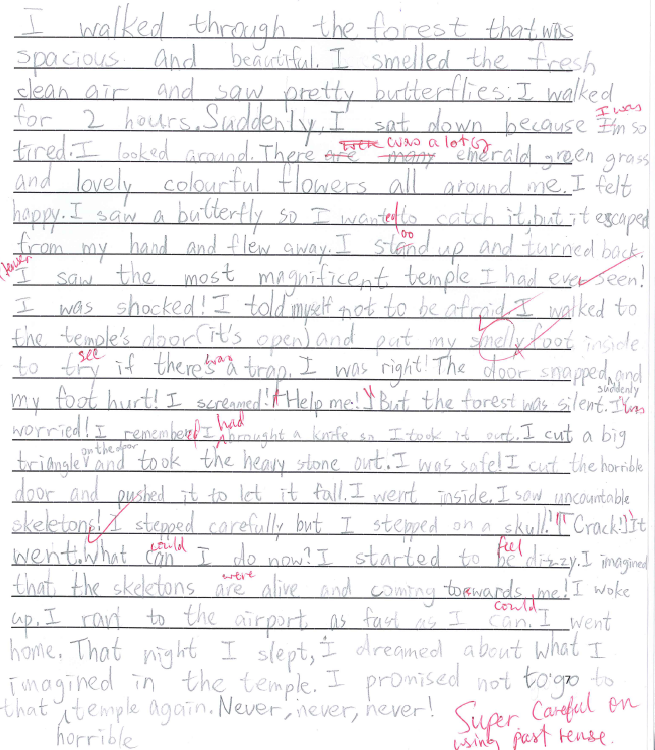 I walked through the forest that was
spacious and beautiful. I smelled the fresh
clean air and saw pretty butterflies. I walked
I was
for 2 hours. Suddenly, I sat down because I'm so
were was a lot of
tired. I looked around. There are many emerald green grass
and lovely colourful flowers all around me. I felt
happy. I saw a butterfly so I wanted to catch it, but it escaped
oo
from my hand and flew away. I stand up and turned back.
I saw the most magnificent temple I had ever seen!
I was shocked! I told myself not to be afraid. I walked to
the temple's door (it's open) and put my smelly foot inside
see was
to try if there's a trap. I was right! The door snapped and
suddenly
my foot hurt! I screamed! "Help me!" But the forest was silent. I was
had
worried! I remembered I brought a knife so I took it out. I cut a big
on the door
triangle and took the heavy stone out. I was safe! I cut the horrible
door and pushed it to let it fall. I went inside. I saw uncountable
skeletons! I stepped carefully but I stepped on a skull! "Crack!" It
could feel
went. What can I do now? I started to be dizzy. I imagined
were
that the skeletons are alive and coming towards me! I woke
could
up. I ran to the airport as fast as I can. I went
home. That night I slept, i dreamed about what I
imagined in the temple. I promised not to go to
that temple again. Never, never, never!
horrible
Super careful on
using past tense.